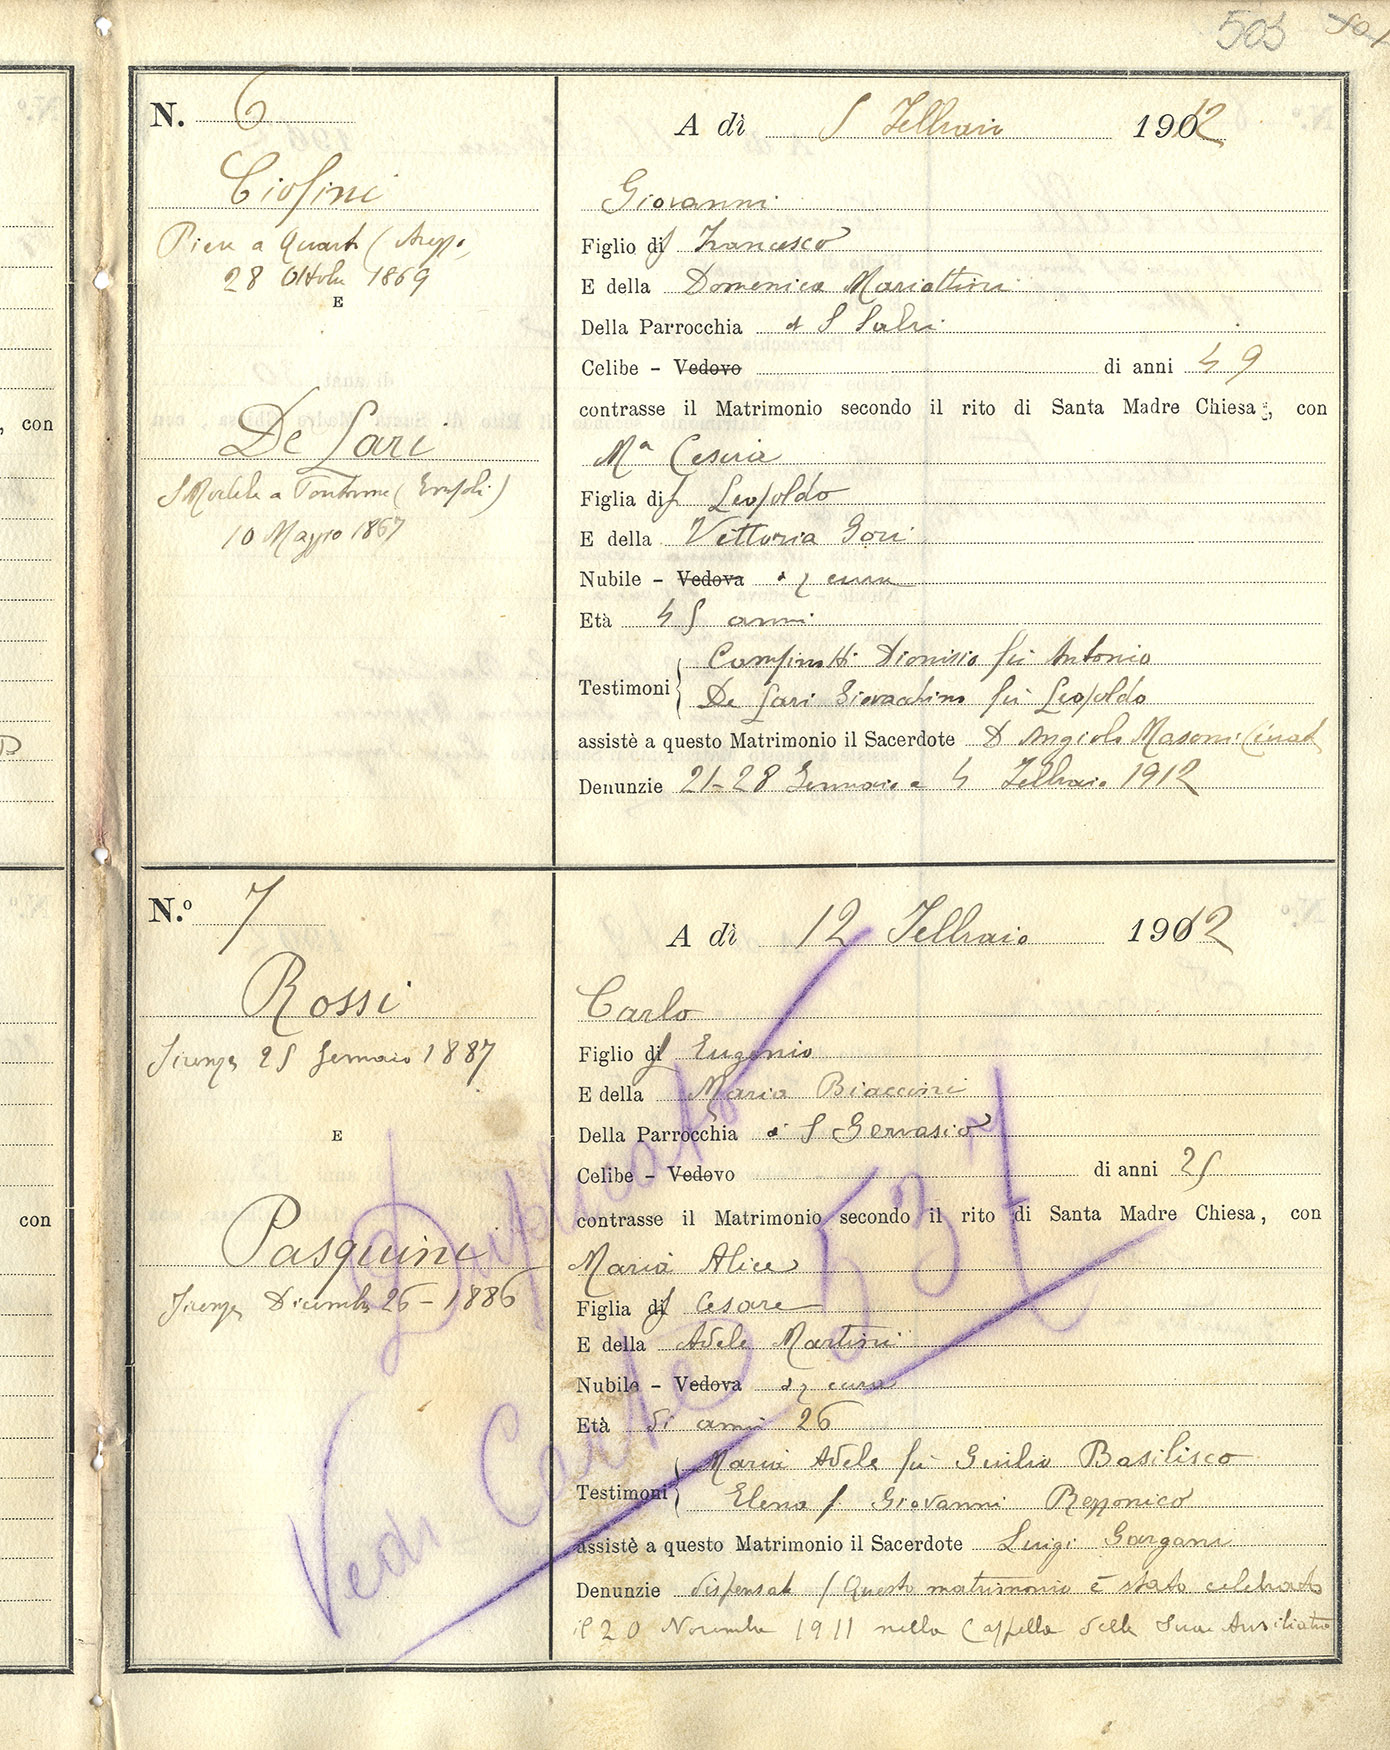 503
N. 6
Ciofini
Pieve a Quarto (Arezzo)
28 Ottobre 1869
E
De Lari
S Michele a Pontorme (Empoli)
10 Maggio 1867
A dì 5 Febbraio 1912
Giovanni
Figlio di f Francesco
E della Domenica Mariottini
Della Parrocchia di S Salvi
Celibe - Vedovo di anni 49
contrasse il Matrimonio secondo il rito di Santa Madre Chiesa, con
Mª Cesira
Figlia di f Leopoldo
E della Vittoria Gori
Nubile - Vedova di q cura
Età 45 anni
Dionisio fu Antonio
Testimoni
De Lari Giovacchino fu Leopoldo
assistè a questo Matrimonio il Sacerdote D Angiolo Masoni Curat
Denunzie 21-28 Gennaio e 4 Febbraio 1912
N.º 7
Rossi
Firenze 25 Gennaio 1887
E
Pasquini
Firenze Dicembre 26 - 1886
A dì 12 Febbraio 1912
Carlo
Figlio di f Eugenio
E della Maria Biaccini
Della Parrocchia di S Gervasio
Celibe - Vedovo di anni 25
contrasse il Matrimonio secondo il rito di Santa Madre Chiesa, con
Maria Alice
Figlia di f Cesare
E della Adele Martini
Nubile - Vedova di q cura
Età di anni 26
Maria Adele fu Giulio Basilisco
Testimoni
Elena f. Giovanni Rezzonico
assistè a questo Matrimonio il Sacerdote Luigi Gargani
Denunzie dispensate / Questo matrimonio è stato celebrato
il 20 Novembre 1911 nella Cappella delle Suore Ausiliatrici
Duplicato
Vedi Carte 537
, con
con